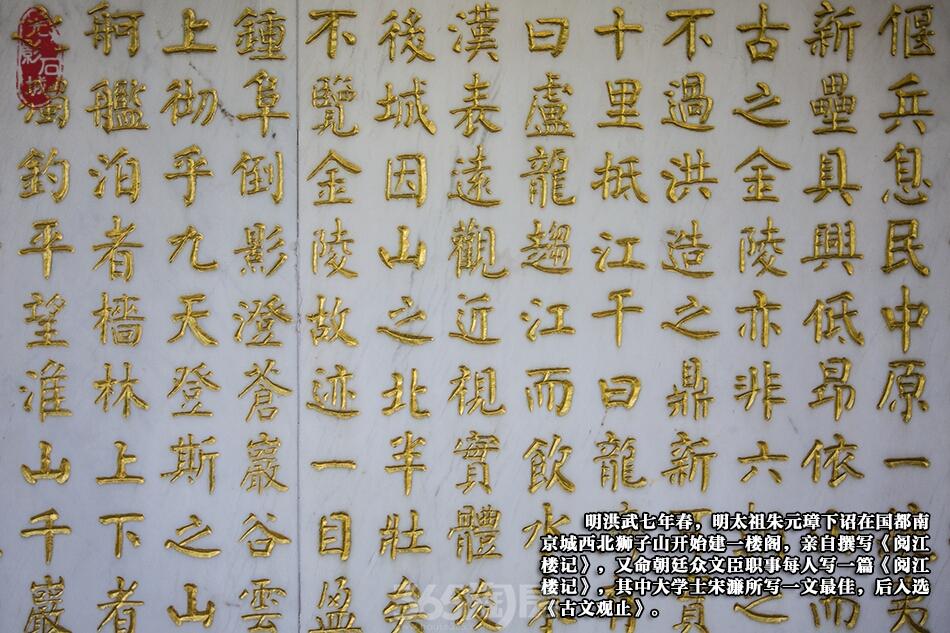 偃兵息民中原一
新壘具興低昂依
古之金陵亦非六
不過洪造之鼎新
十里抵江干曰龍
曰盧龍趨江而飲水
漢表遠觀近視實體
後城因山之北半壯
不覽金陵故迹一目盈
鍾阜倒影澄蒼巖谷雲
上彻乎九天登斯之山
舸艦泊者檣林上下者
釣平望淮山千巖
明洪武七年春，明太祖朱元璋下诏在国都南
京城西北狮子山开始建一楼阁，亲自撰写《阅江
楼记》，又命朝廷众文臣职事每人写一篇《阅江
楼记》，其中大学士宋濂所写一文最佳，后入选
《古文观止》。
365淘房